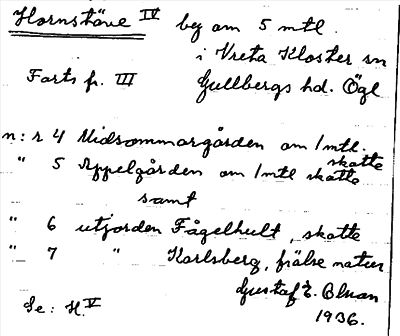 Hornstäve IV beg om 5 mtl.
i Vreta Kloster sn
Forts fr. III Gullbergs hd. Ögl
n:r 4 Midsommargården om 1 mtl. skatte
" 5 Appelgården om 1 mtl skatte
samt
" 6 utjorden Fågelhult, skatte
" 7 " Karlsberg, frälse natur
Gustaf E. Blman
1936.
Se: H. V